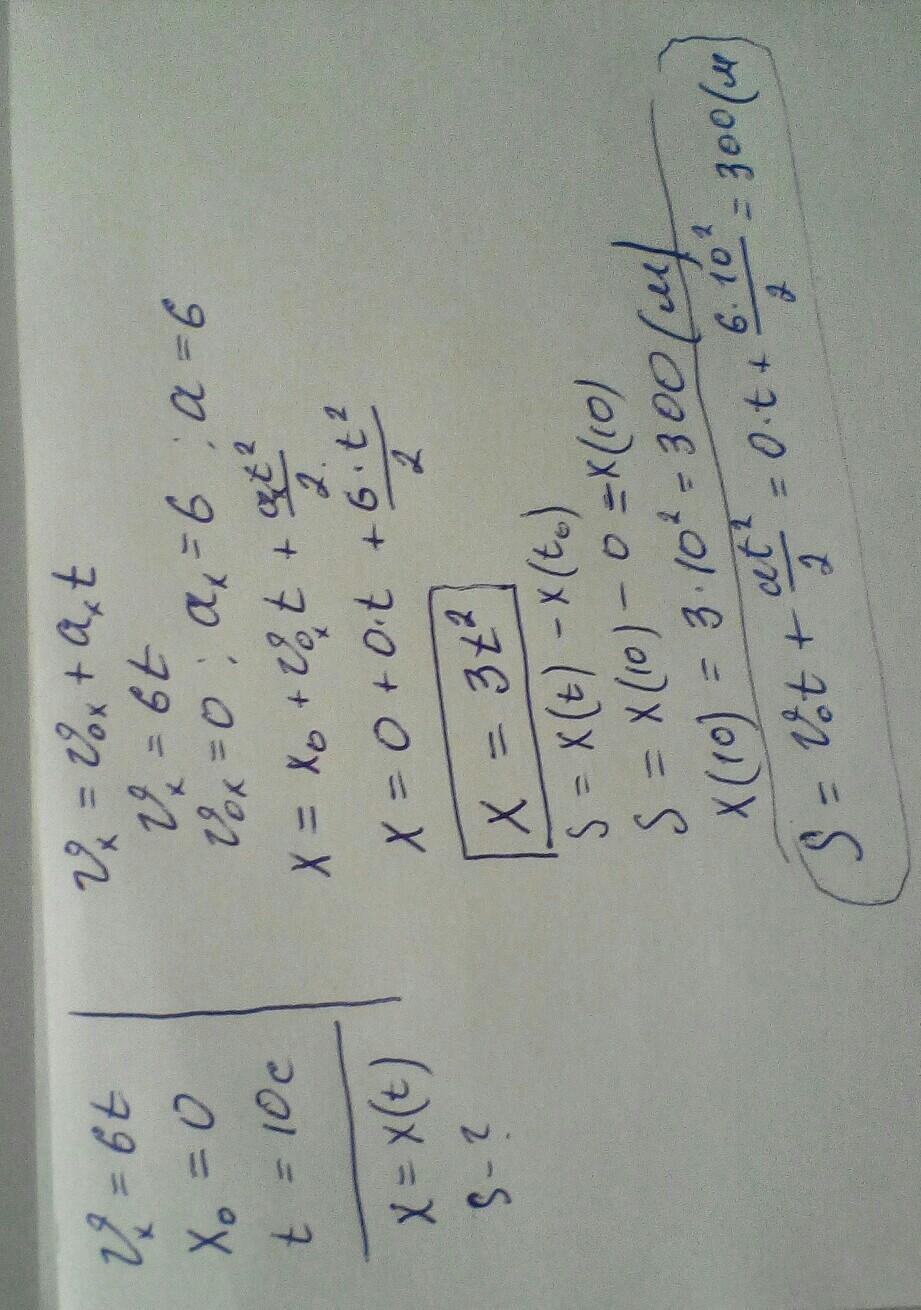 υₓ = 6t
x₀ = 0
t = 10c
x = x(t)
S - ?
υₓ = υ₀ₓ + aₓt
υₓ = 6t
υ₀ₓ = 0 ; aₓ = 6 ; a = 6
x = x₀ + υ₀ₓt + aₓt²/2
x = 0 + 0·t + 6·t²/2
x = 3t²
S = x(t) - x(t₀)
S = x(10) - 0 = x(10)
x(10) = 3·10² = 300 (м)
S = υ₀t + at²/2 = 0·t + 6·10²/2 = 300 (м